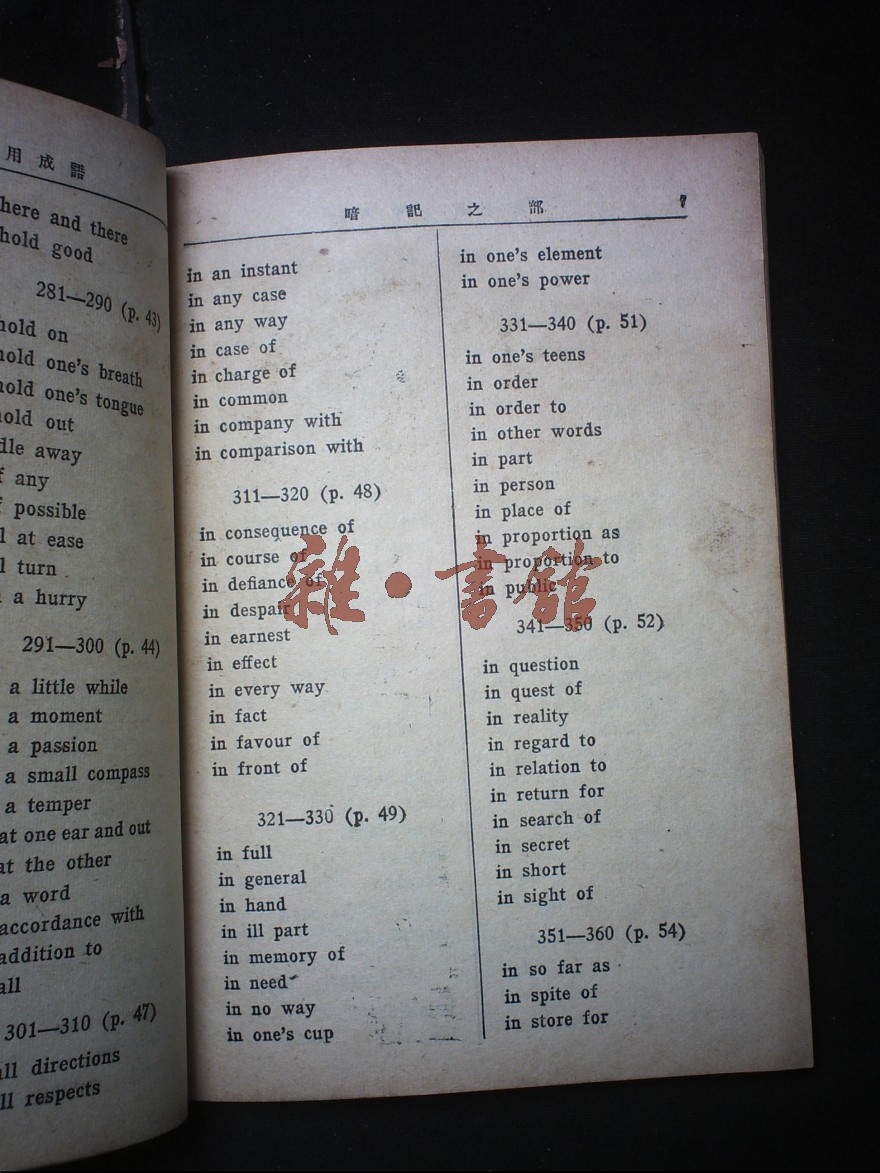 用成語
here and there
hold good
281—290 (p. 43)
hold on
hold one's breath
hold one's tongue
hold out
dle away
f any
f possible
l at ease
l turn
a hurry
291—300 (p. 44)
a little while
a moment
a passion
a small compass
a temper
at one ear and out
at the other
a word
accordance with
addition to
all
301—310 (p. 47)
all directions
ll respects
暗記之部 7
in an instant
in any case
in any way
in case of
in charge of
in common
in company with
in comparison with
311—320 (p. 48)
in consequence of
in course of
in defiance of
in despair
in earnest
in effect
in every way
in fact
in favour of
in front of
321—330 (p. 49)
in full
in general
in hand
in ill part
in memory of
in need
in no way
in one's cup
in one's element
in one's power
331—340 (p. 51)
in one's teens
in order
in order to
in other words
in part
in person
in place of
in proportion as
in proportion to
in public
341—350 (p. 52)
in question
in quest of
in reality
in regard to
in relation to
in return for
in search of
in secret
in short
in sight of
351—360 (p. 54)
in so far as
in spite of
in store for
雜·書館